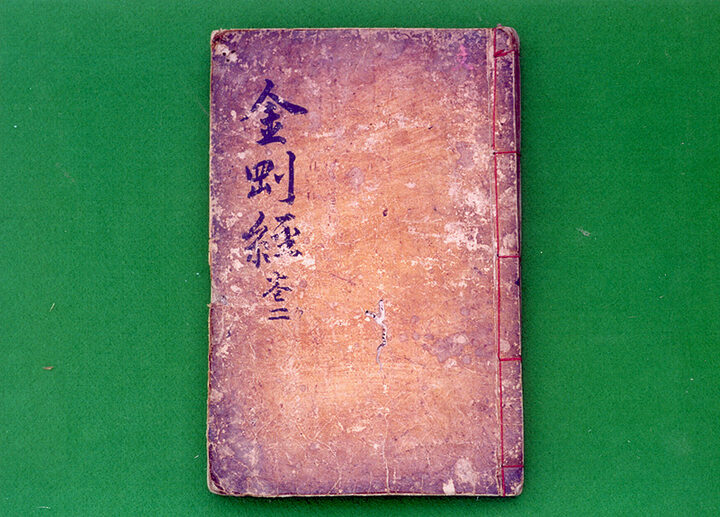 金剛經卷二